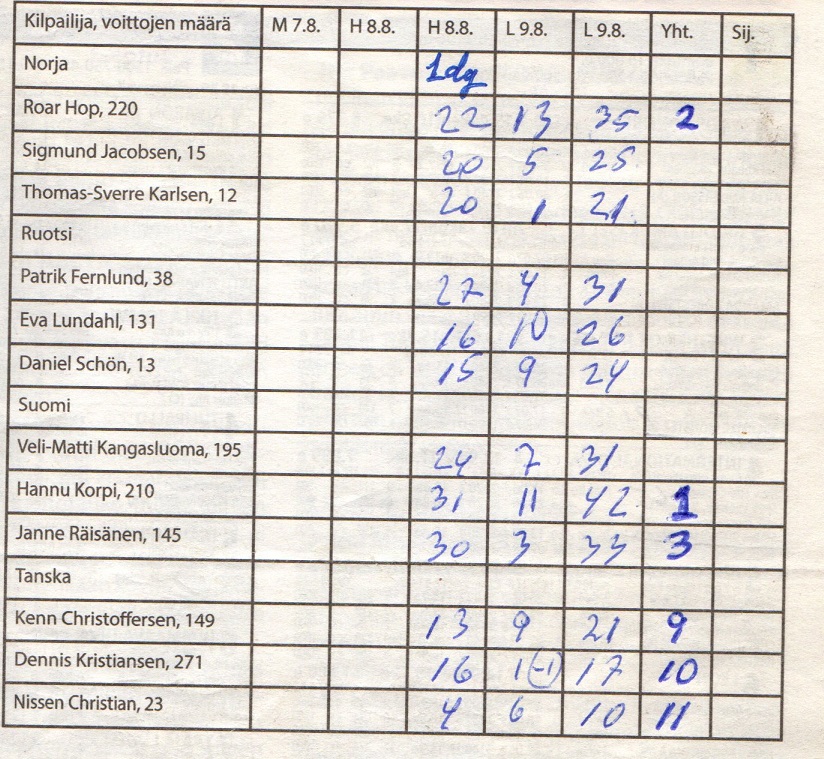 Kilpailija, voittojen määrä M 7.8. H 8.8. H 8.8. L 9.8. L 9.8. Yht. Sij.
Norja 1dg
Roar Hop, 220 22 13 35 2
Sigmund Jacobsen, 15 20 5 25
Thomas-Sverre Karlsen, 12 20 1 21
Ruotsi
Patrik Fernlund, 38 27 4 31
Eva Lundahl, 131 16 10 26
Daniel Schön, 13 15 9 24
Suomi
Veli-Matti Kangasluoma, 195 24 7 31
Hannu Korpi, 210 31 11 42 1
Janne Räisänen, 145 30 3 33 3
Tanska
Kenn Christoffersen, 149 13 9 21 9
Dennis Kristiansen, 271 16 1 (-1) 17 10
Nissen Christian, 23 4 6 10 11